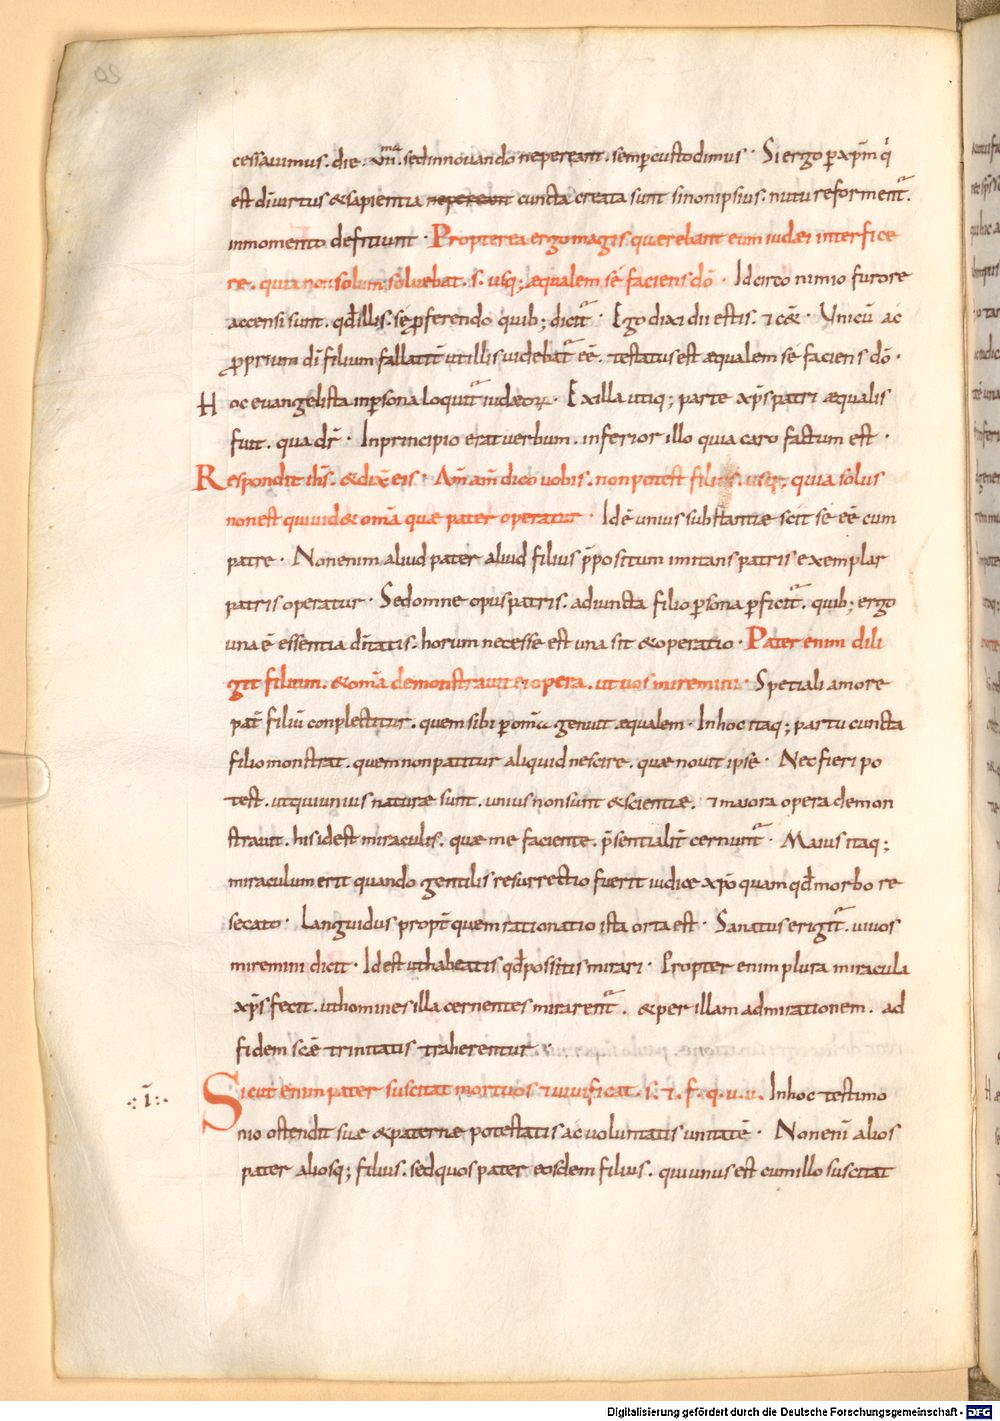 cessavimus. die. vii.ma sed innovando ne pereant. semp custodimus. Si ergo p xpm q
est di virtus & sapientia ne pereant cuncta creata sunt sinon ipsius. nutu reforment.
in momento defitiunt. Propterea ergo magis querebant eum iudæi interfice
re. quia non solum solvebat. s. usq; æqualem sé faciens dō. Idcirco nimio furore
accensi sunt. qđ illis. sé pferendo quib; dicit. Ego dixi dii estis. & cet. Unicū ac
pprium di filium fallatit ut illis videbat ēē. testatus est æqualem sé faciens dō.
Hoc evangelista in psona loquit iudæoꝝ. Ex illa utiq; parte xps patri æqualis
fuit. qua dr. In principio erat verbum. inferior illo quia caro factum est.
Respondit ihs. & dix eis. Am am dico vobis. non potest filius. usq; quia solus
non est qui vid& oma quæ pater operatur. Idē unius substantiæ scit sé ēē cum
patre. Non enim aliud pater aliud filius ppositum imitans patris exemplar
patris operatur. Sed omne opus patris. adiuncta filio psona pficit. quib; ergo
una ē essentia dītatis. horum necesse est una sit & operatio. Pater enim dili
git filium. & oma demonstravit ei opera. ut vos miremini. Spetiali amore
pat filiū conplectitur. quem sibi p oma genuit æqualem. In hoc itaq; partu cuncta
filio monstrat. quem non patitur aliquid nescire. quæ novit ipse. Nec fieri po
test. ut qui unius naturæ sunt. unius non sunt & scientiæ. & maiora opera demon
stravit. his id est miraculis. quæ me faciente. psentialit cernunt. Maius itaq;
miraculum erit quando gentilis resurrectio fuerit iudice xpo quam qđ morbo re
secato. Languidus propt quem rationatio ista orta est. Sanatus erigit. ut vos
miremini dicit. Id est ut habeatis qđ possitis mirari. Propter enim plura miracula
xps fecit. ut homines illa cernentes mirarent. & per illam admirationem. ad
fidem scē trinitatis traherentur.
.:ī:. Sicut enim pater suscitat mortuos & vivificat. s. & f. q. v. v. In hoc testimo
nio ostendit suæ & paternæ potestatis ac voluntatis unitatē. Non enī alios
pater aliosq; filius. sed quos pater eosdem filius. qui unus est cum illo suscitat
Digitalisierung gefördert durch die Deutsche Forschungsgemeinschaft - DFG